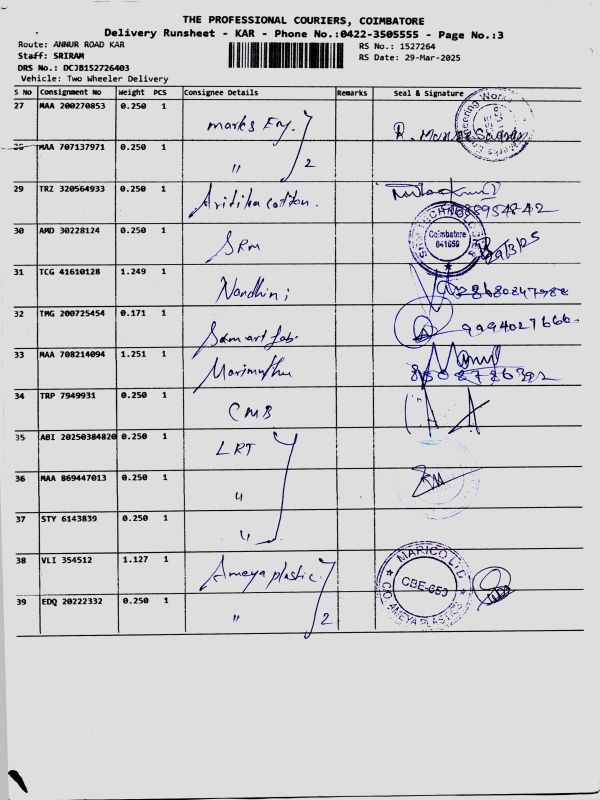 THE PROFESSIONAL COURIERS, COIMBATORE
Delivery Runsheet - KAR - Phone No.:0422-3505555 - Page No.:3
Route: ANNUR ROAD KAR
RS No.: 1527264
Staff: SRIRAM
RS Date: 29-Mar-2025
DRS No.: DCJB152726403
Vehicle: Two Wheeler Delivery
S No Consignment No Weight PCS Consignee Details Remarks Seal & Signature
27 MAA 200270853 0.250 1 marks Eng.
28 MAA 707137971 0.250 1 " 2
29 TRZ 320564933 0.250 1
30 AMD 30228124 0.250 1 SRM Coimbatore 641659 29/3/25
31 TCG 41610128 1.249 1 Nandhini
32 TMG 200725454 0.171 1 9994027666
33 MAA 708214094 1.251 1 Marimuthu
34 TRP 7949931 0.250 1 CMB
35 ABI 20250384820 0.250 1 LRT
36 MAA 869447013 0.250 1 "
37 STY 6143839 0.250 1 "
38 VLI 354512 1.127 1 Ameya plastic. MARICO LTD CBE-653 C/O. AMEYA PLASTICS
39 EDQ 20222332 0.250 1 " 2